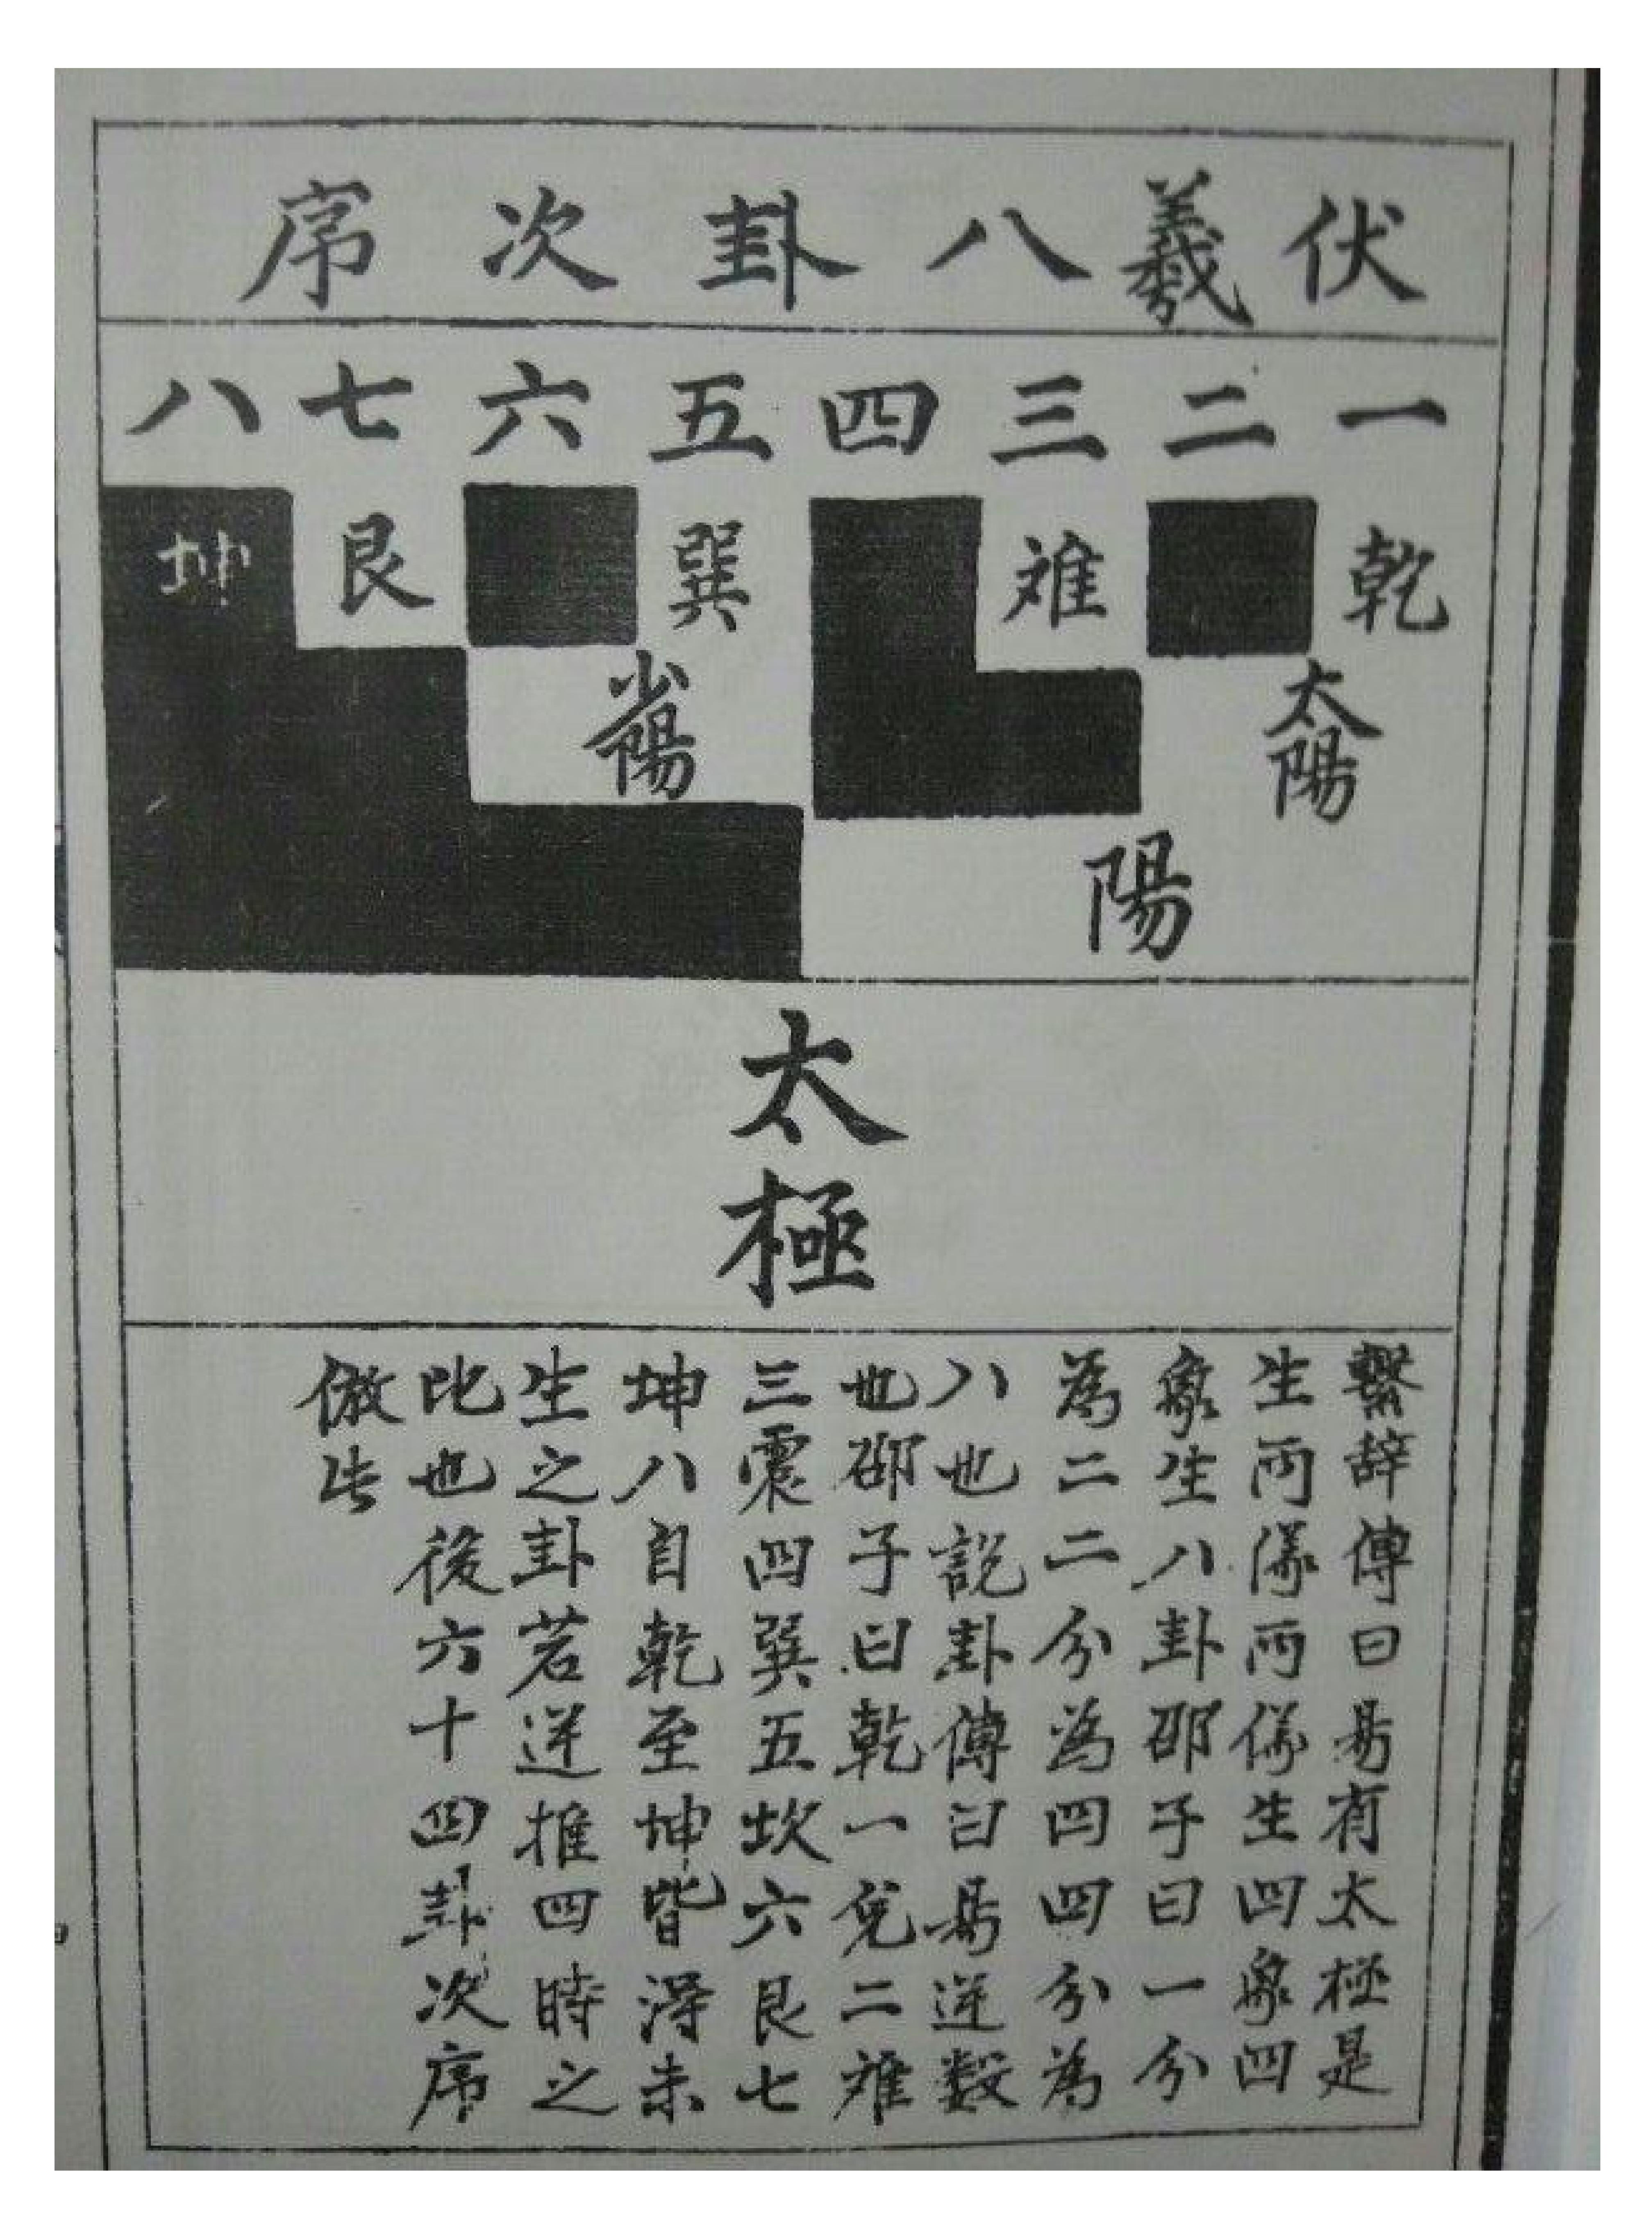 伏羲八卦次序
一二三四五六七八
乾離巽艮坤
太陽
少陽
陽
太極
繫辞傳曰易有太極是
生兩儀兩儀生四象四
象生八卦邵子曰一分
為二二分為四四分為
八也說卦傳曰易逆數
也邵子曰乾一兌二離
三震四巽五坎六艮七
坤八自乾至坤皆得未
生之卦若逆推四時之
比也後六十四卦次序
倣此